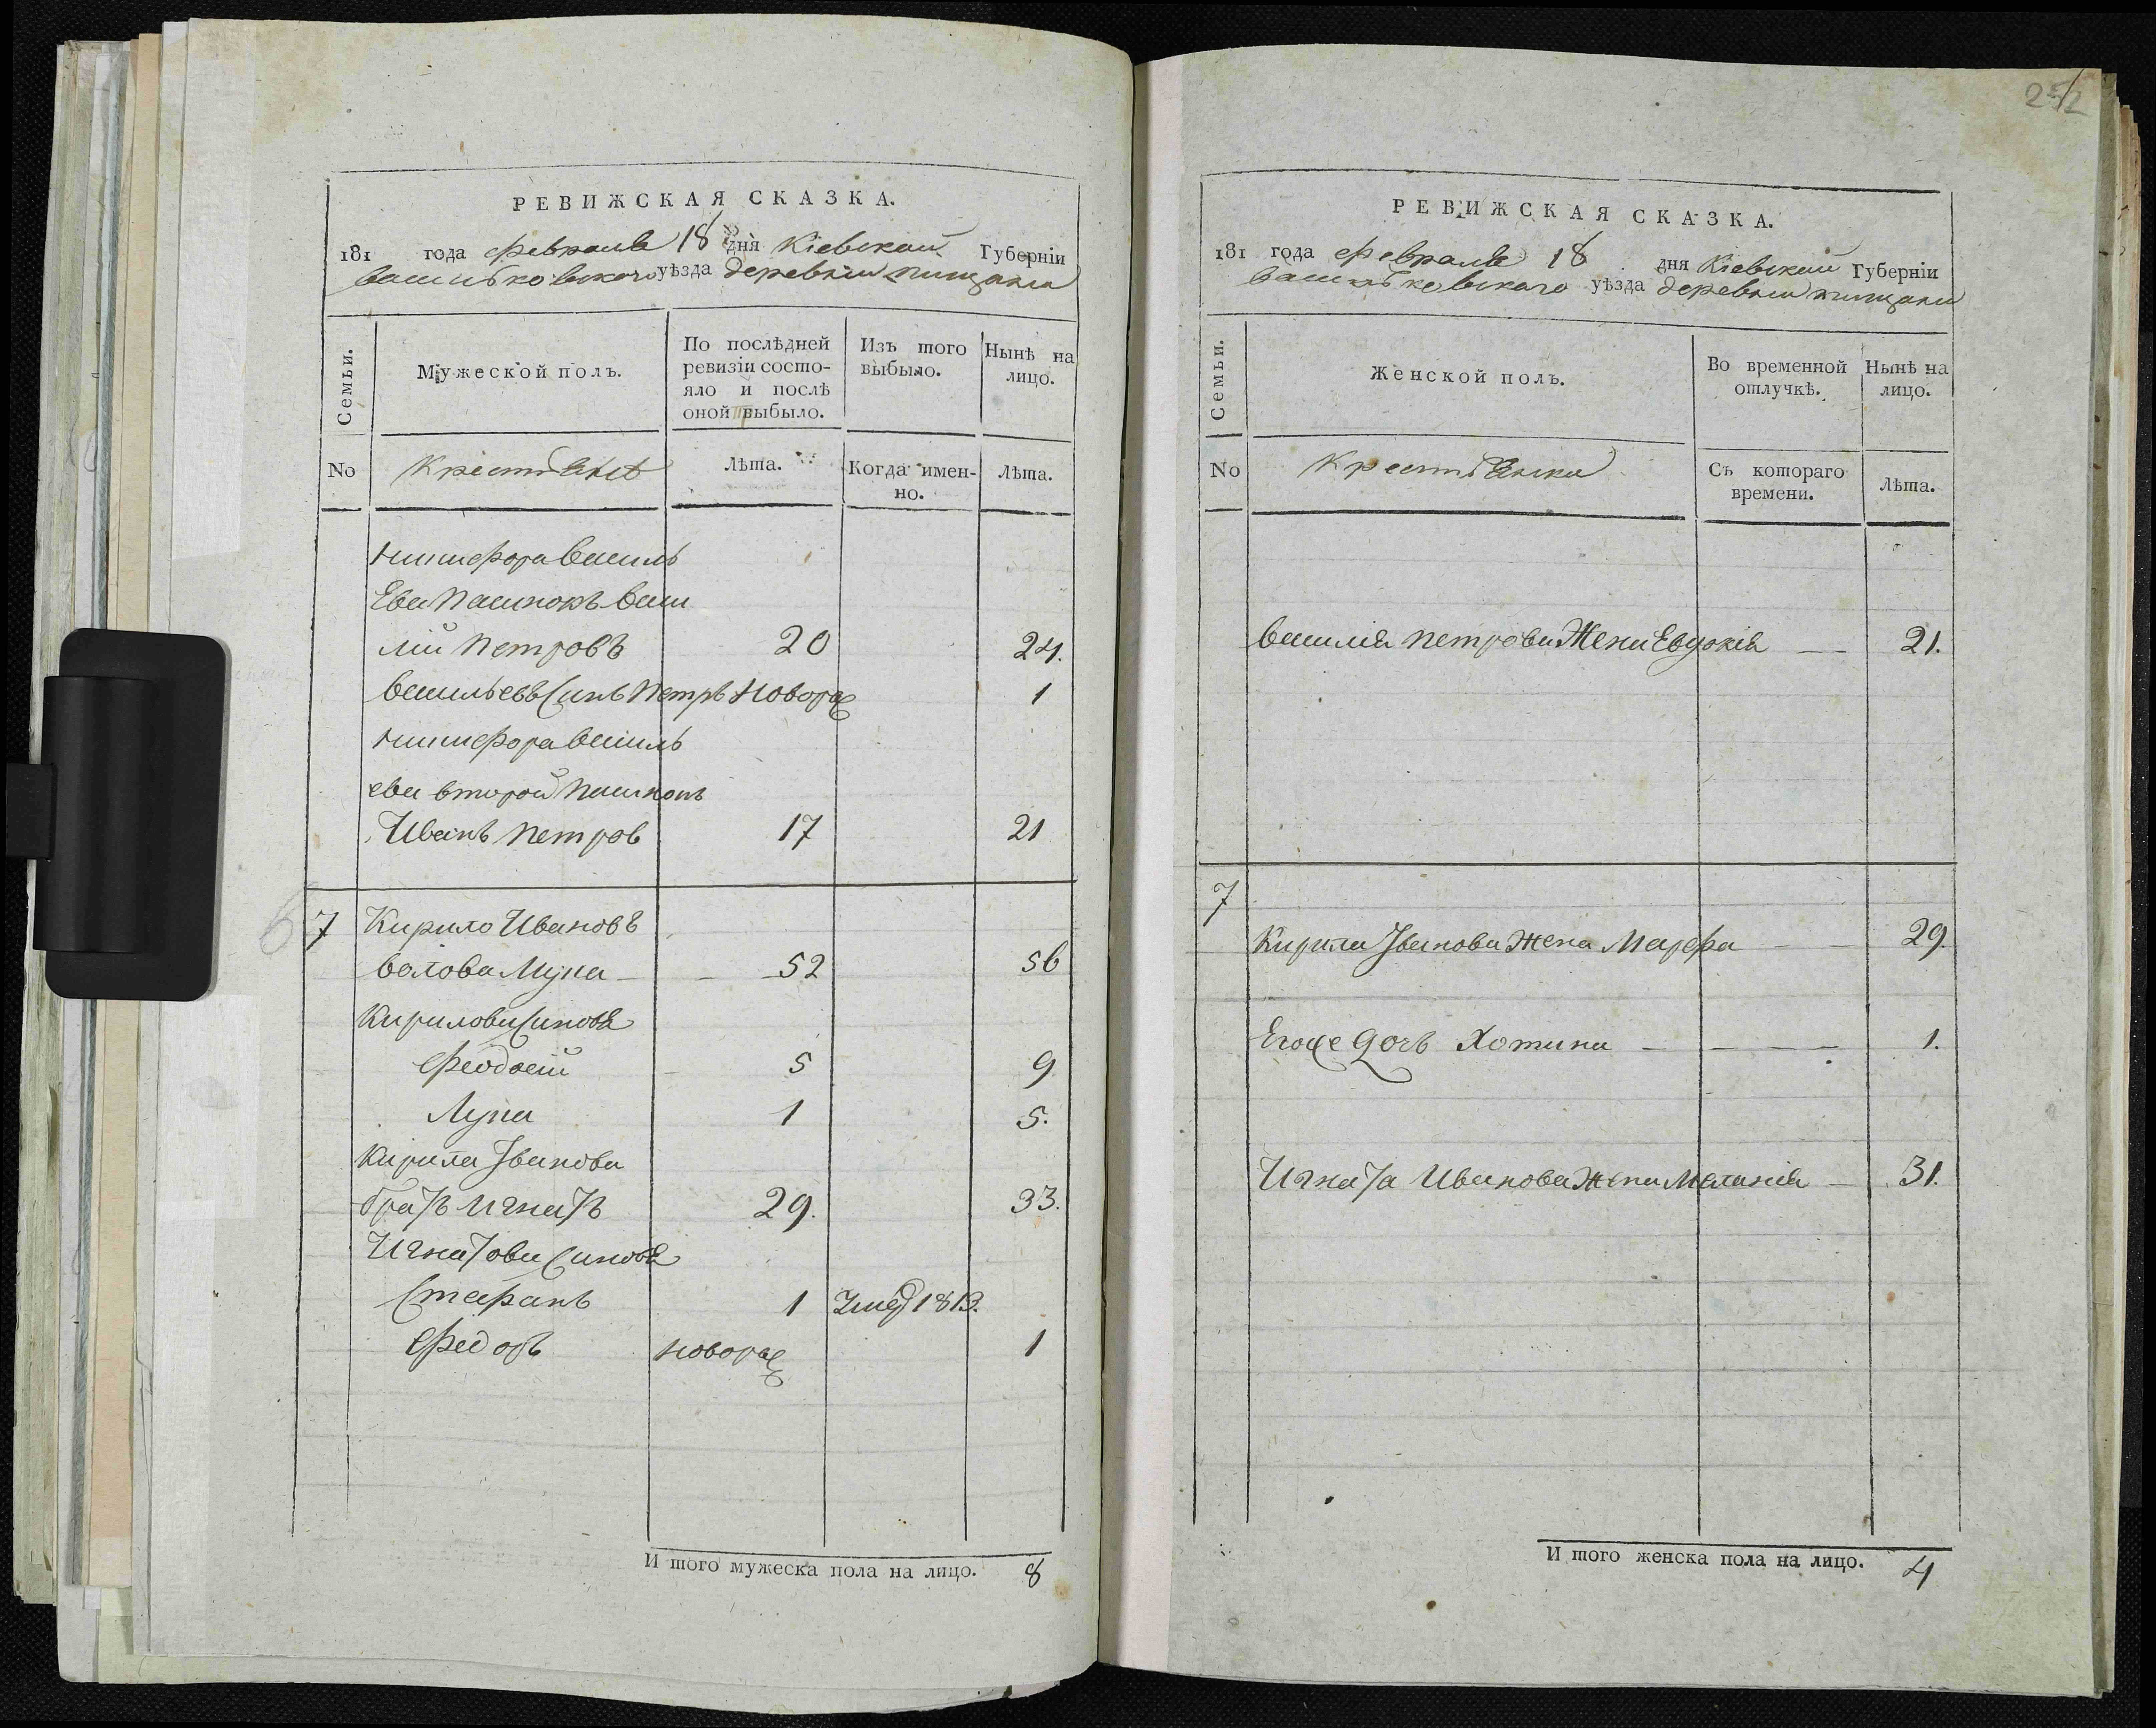 РЕВИЖСКАЯ СКАЗКА.
181 года февраля 18 дня Кіевской Губерніи
васильковского уѣзда деревни пищики
Семьи.
Мужеской полъ.
По послѣдней ревизіи состо-
яло и послѣ
оной выбыло.
Изъ того выбыло.
Нынѣ на лицо.
No
Крестьяне
Лѣта.
Когда имен-
но.
Лѣта.
никифора василь
Ева пасинокъ васи
лій Петровъ 20 24.
васильевъ Синъ Петръ Новорож 1
никифора василь
ева второй пасинокъ
Иванъ Петров 17 21
6 7 Кирило Ивановъ
52 56
Кирилови Синовя
Феодосій 5 9
Лупа 1 5.
Кирила Іванова
братъ игнатъ 29. 33.
Игнатови Синовя
Стефанъ 1 Умер 1813.
Федоръ новорож 1
И того мужеска пола на лицо. 8
252
РЕВИЖСКАЯ СКАЗКА.
181 года февраля 18 дня Кіевской Губерніи
васильковского уѣзда деревни пищики
Семьи.
Женской полъ.
Во временной отлучкѣ.
Нынѣ на лицо.
No
Крестьянки
Съ котораго времени.
Лѣта.
василія петрова Жена Евдокія 21.
7
Кирила Іванова Жена Марфа 29.
Егоже дочь Хотина 1.
Игната Иванова Жена Меланія 31.
И того женска пола на лицо. 4